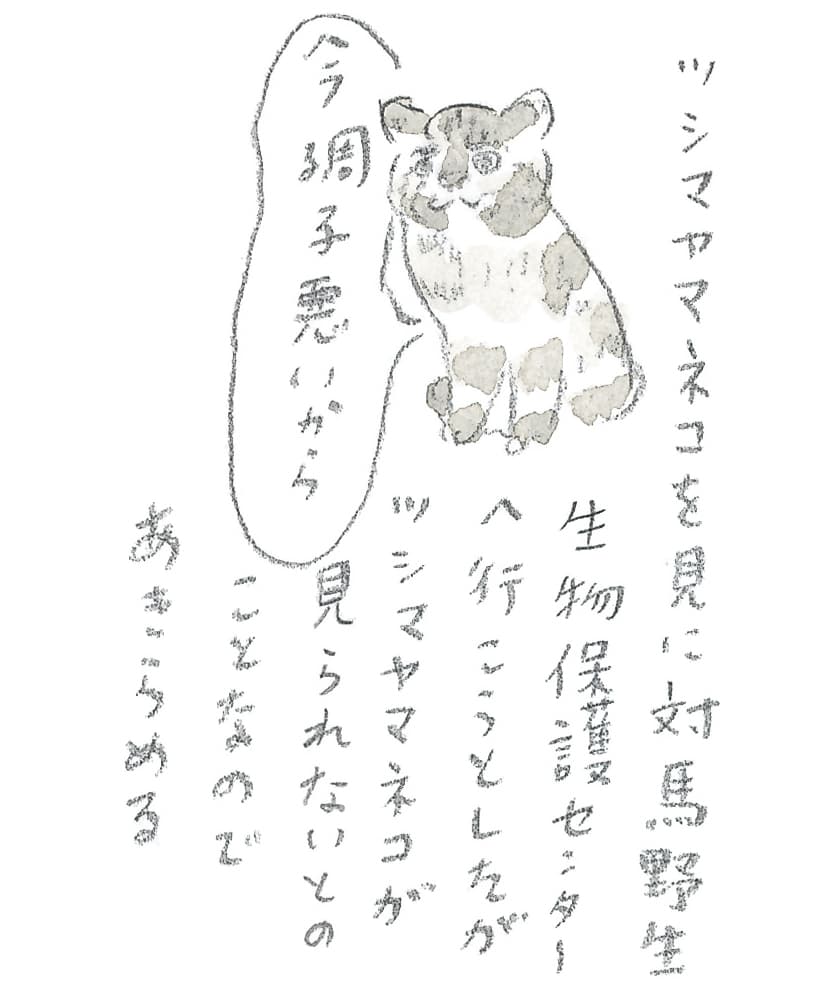 ツシマヤマネコを見に対馬野生
生物保護センター
へ行こうとしたが
ツシマヤマネコが
見られないとの
ことなので
あきらめる
今調子悪いから